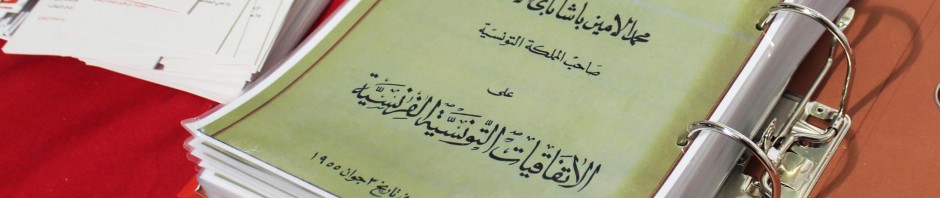 محمد الامين باشا باي
صاحب المملكة التونسية
على
الاتفاقيات التونسية الفرنسية
تاريخ ٣ جوان ١٩٥٥